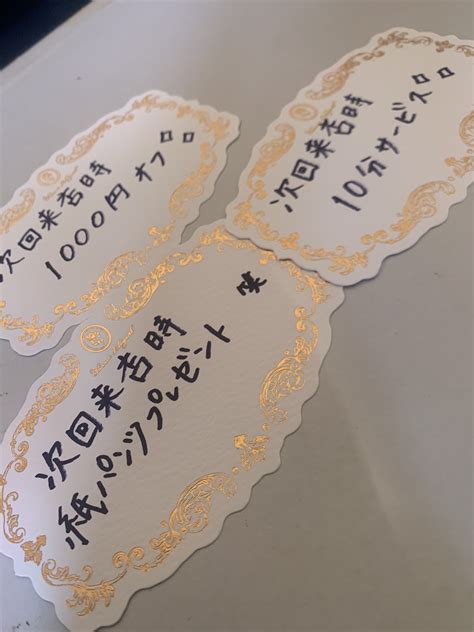 次回来店時
1000円オフ◇◇
次回来店時
10分サービス◇◇
次回来店時
紙パンツプレゼント
笑